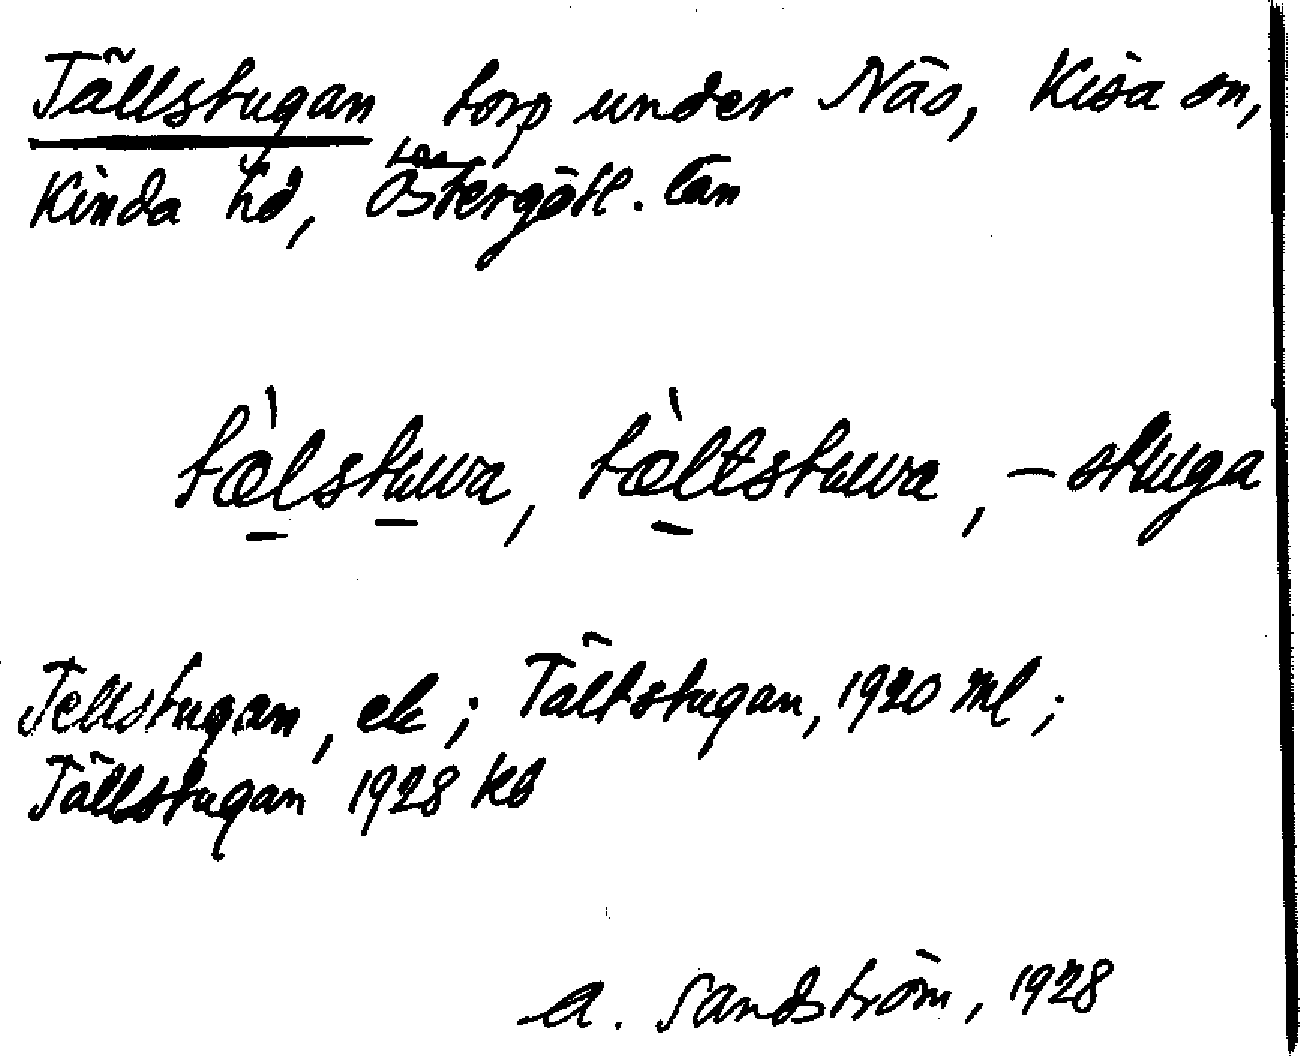 Tällstugan torp under Näs, Kisa sn,
Kinda hd, Östergötl. län
tæ̀lstuwa, tæ̀ltstuwa, – stuga
Tellstugan, ek; Tältstugan, 1920 ml;
Tällstugan 1928 kb
A. Sandström, 1928